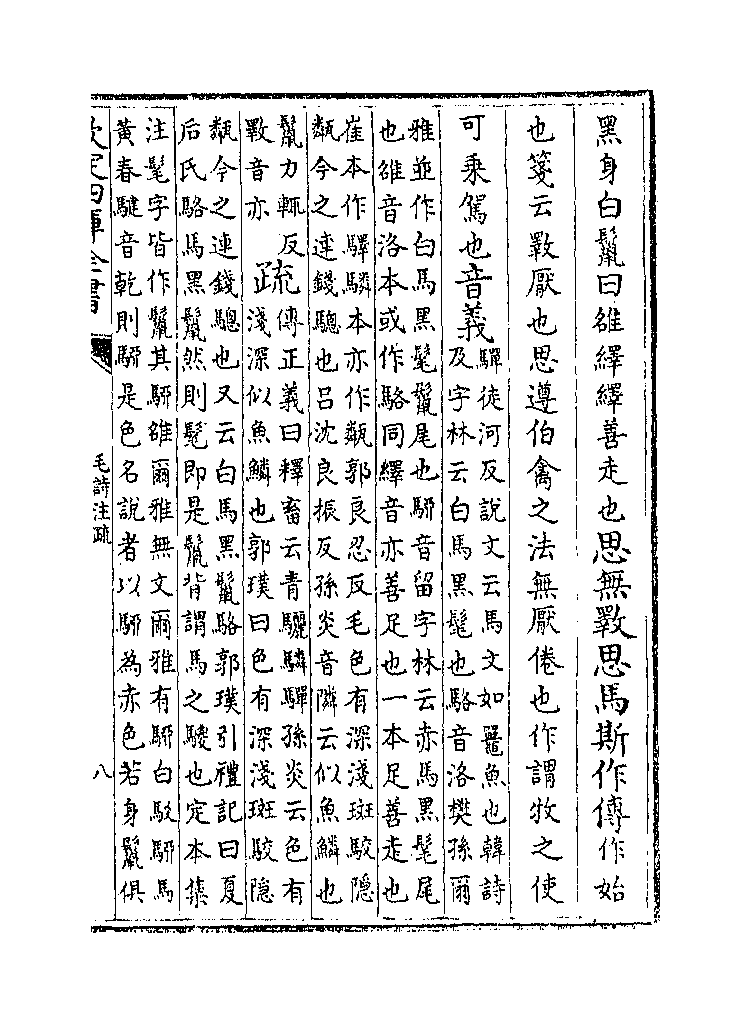 黑身白鬛曰雒繹繹善走也思無斁思馬斯作傳作始
也箋云斁厭也思遵伯禽之法無厭倦也作謂牧之使
可乘駕也音義驒徒河反說文云馬文如鼉魚也韓詩
及字林云白馬黑髦也駱音洛樊孫爾
雅並作白馬黑髦鬛尾也駵音留字林云赤馬黑髦尾
也雒音洛本或作駱同繹音亦善足也一本足善走也
崔本作驛驎本亦作甐郭良忍反毛色有深淺斑駮隱
甐今之連錢驄也呂沈良振反孫炎音隣云似魚鱗也
鬛力輒反
斁音亦
疏傳正義曰釋畜云青驪驎驒孫炎云色有
淺深似魚鱗也郭璞曰色有深淺斑駮隱
甐今之連錢驄也又云白馬黑鬛駱郭璞引禮記曰夏
后氏駱馬黑鬛然則髦即是鬛皆謂馬之騣也定本集
注髦字皆作鬛其駵雒爾雅無文爾雅有駵白駁駵馬
黃春騝音乾則駵是色名說者以駵為赤色若身鬛俱
欽定四庫全書
毛詩注疏
八